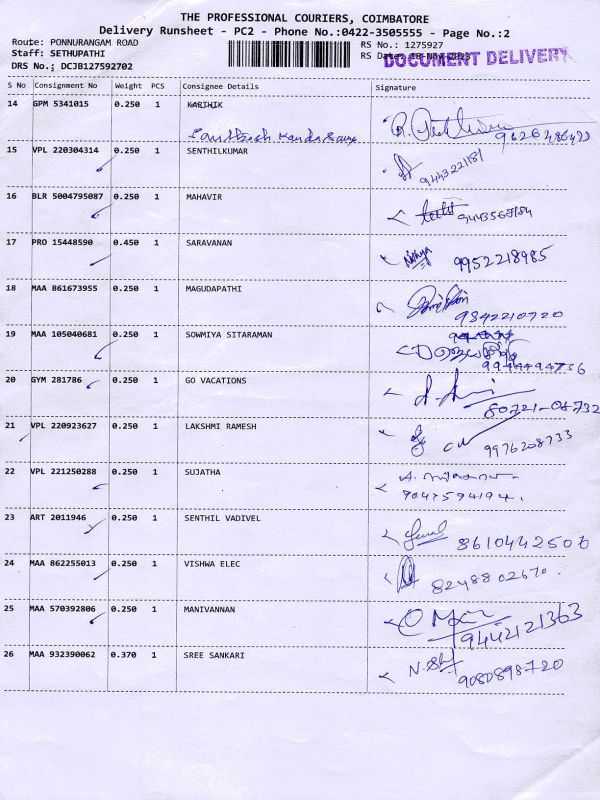 THE PROFESSIONAL COURIERS, COIMBATORE
Delivery Runsheet - PC2 - Phone No.:0422-3505555 - Page No.:2
Route: PONNURANGAM ROAD
RS No.: 1275927
Staff: SETHUPATHI
RS Date: 18-Nov-2023
DOCUMENT DELIVERY
DRS No.; DCJB127592702
S No Consignment No Weight PCS Consignee Details Signature
14 GPM 5341015 0.250 1 KARTHIK
15 VPL 220304314 0.250 1 SENTHILKUMAR 9443221181
16 BLR 5004795087 0.250 1 MAHAVIR 9443567184
17 PRO 15448590 0.450 1 SARAVANAN 9952218985
18 MAA 861673955 0.250 1 MAGUDAPATHI
9842210720
19 MAA 105040681 0.250 1 SOWMIYA SITARAMAN
20 GYM 281786 0.250 1 GO VACATIONS
21 VPL 220923627 0.250 1 LAKSHMI RAMESH
9976208733
22 VPL 221250288 0.250 1 SUJATHA
9047594194.
23 ART 2011946 0.250 1 SENTHIL VADIVEL 8610442506
24 MAA 862255013 0.250 1 VISHWA ELEC 8248802670.
25 MAA 570392806 0.250 1 MANIVANNAN
9442121363
26 MAA 932390062 0.370 1 SREE SANKARI
9080898720